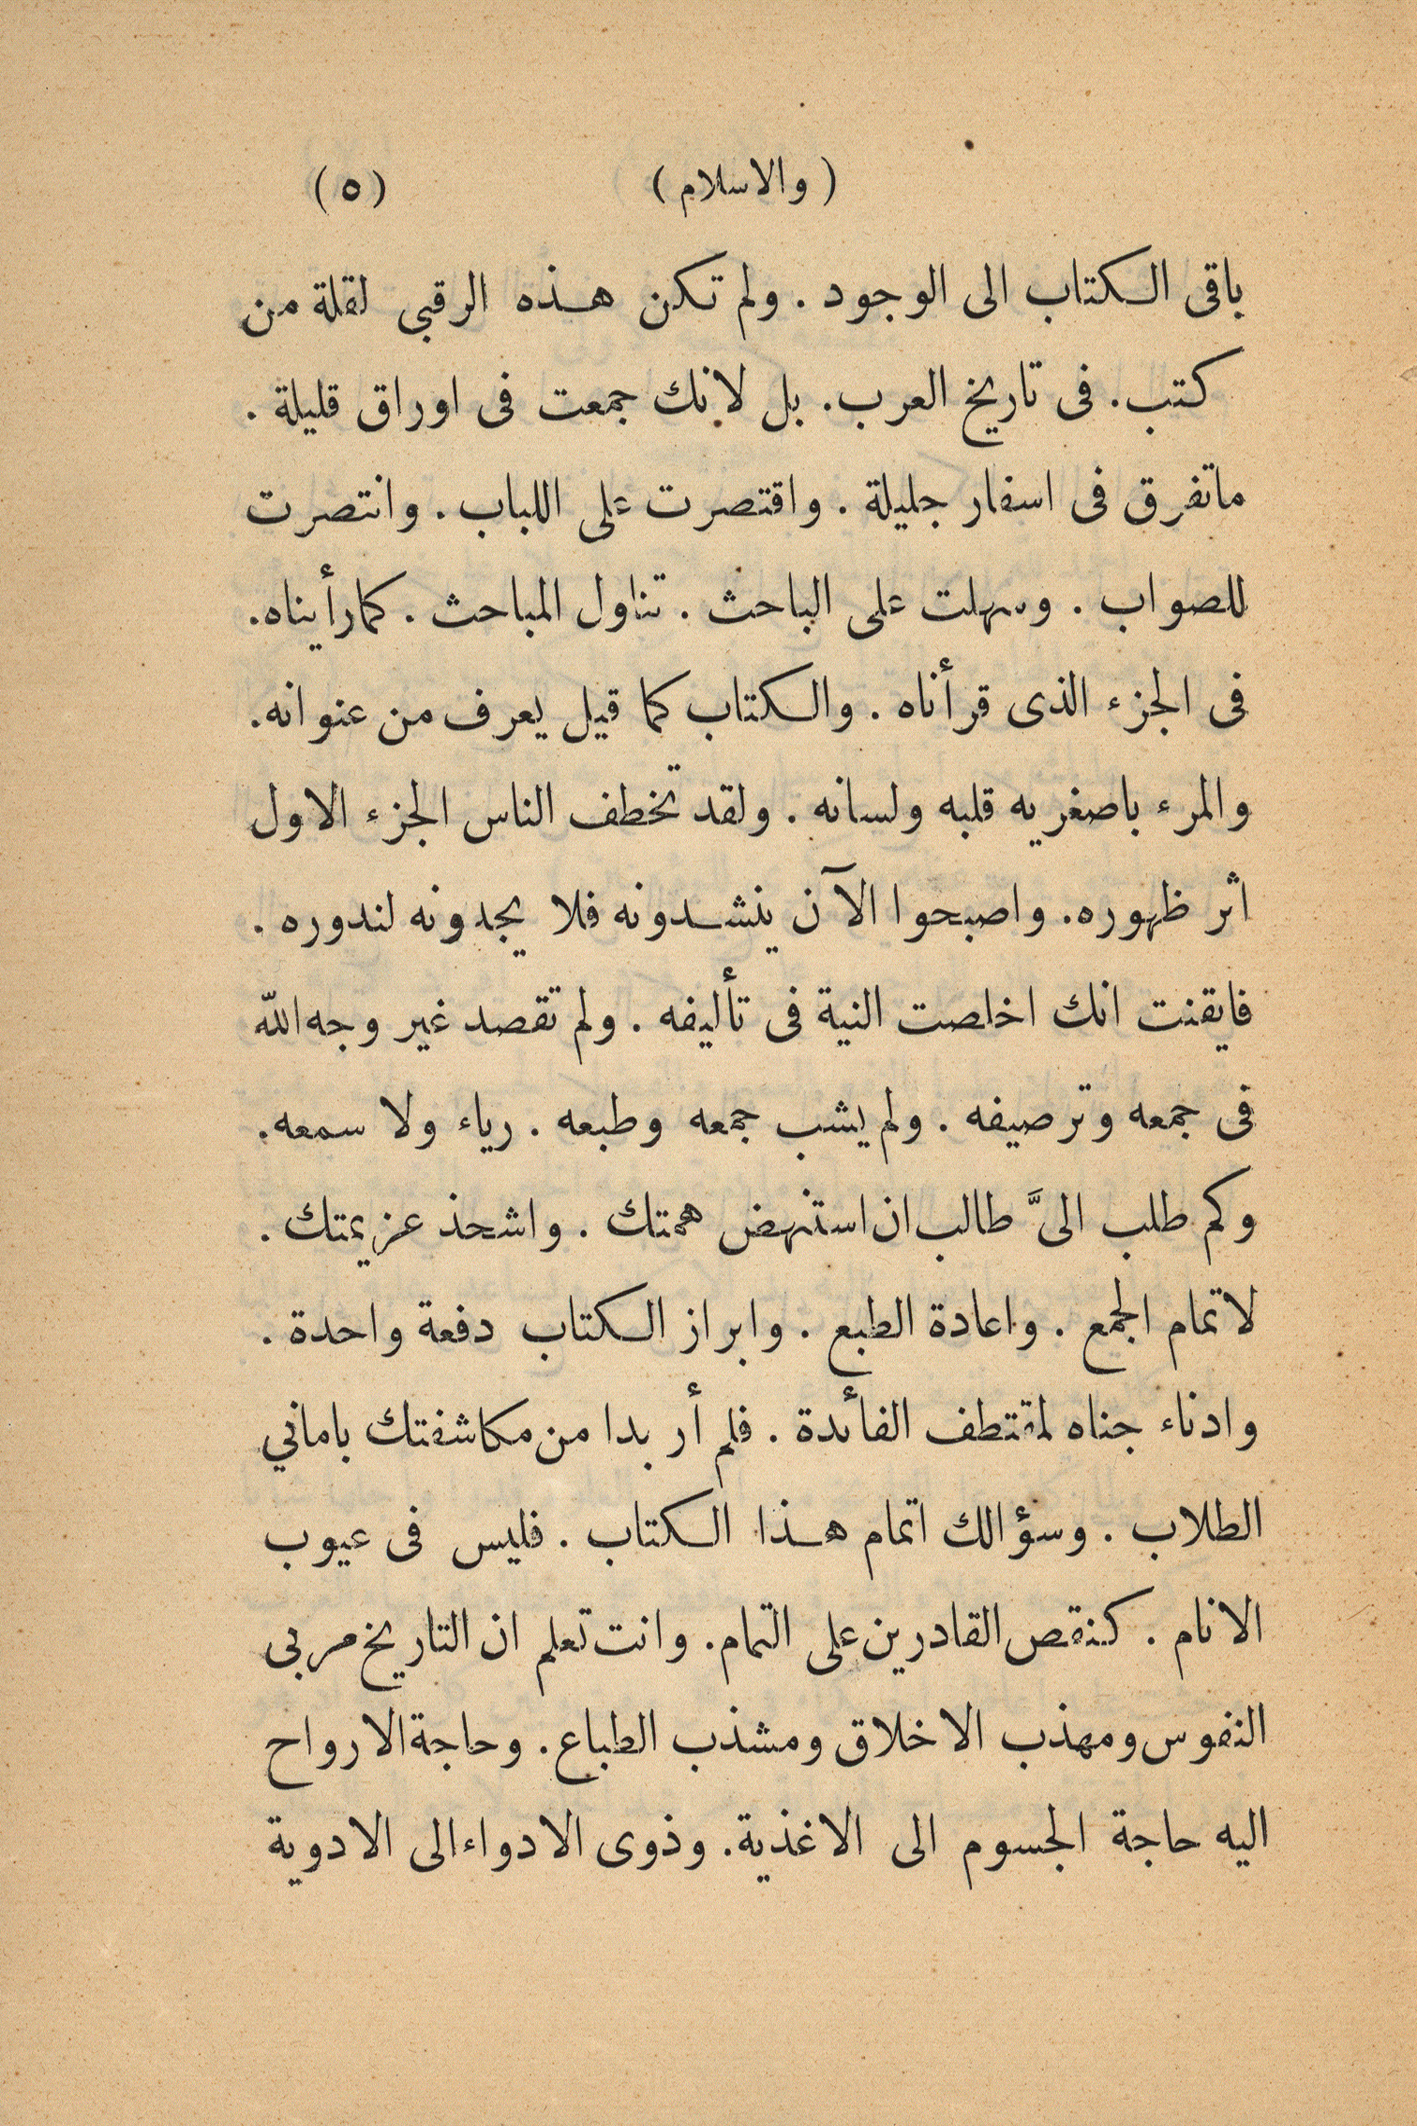 ( والاسلام ) (٥)
باقى الكتاب الى الوجود . ولم تكن هذه الرقبى لقلة من
كتب . فى تاريخ العرب . بل لانك جمعت فى اوراق قليلة .
ماتفرق فى اسفار جليلة . واقتصرت على اللباب . وانتصرت
للصواب . وسهلت على الباحث . تناول المباحث . كمارأيناه .
فى الجزء الذى قرأناه . والكتاب كما قيل يعرف من عنوانه .
والمرء باصغريه قلبه ولسانه . ولقد تخطف الناس الجزء الاول
اثر ظهوره . واصبحوا الآن ينشدونه فلا يجدونه لندوره .
فايقنت انك اخلصت النية فى تأليفه . ولم تقصد غير وجه الله
فى جمعه وترصيفه . ولم يشب جمعه وطبعه . رياء ولا سمعه .
وكم طلب الىَّ طالب ان استنهض همتك . واشحذ عزيمتك .
لاتمام الجمع . واعادة الطبع . وابراز الكتاب دفعة واحدة .
وادناء جناه لمقتطف الفائدة . فلم أر بدا من مكاشفتك باماني
الطلاب . وسؤالك اتمام هذا الكتاب . فليس فى عيوب
الانام . كنقص القادرين على التمام . وانت تعلم ان التاريخ مربى
النفوس ومهذب الاخلاق ومشذب الطباع . وحاجة الارواح
اليه حاجة الجسوم الى الاغذية . وذوى الادواء الى الادوية